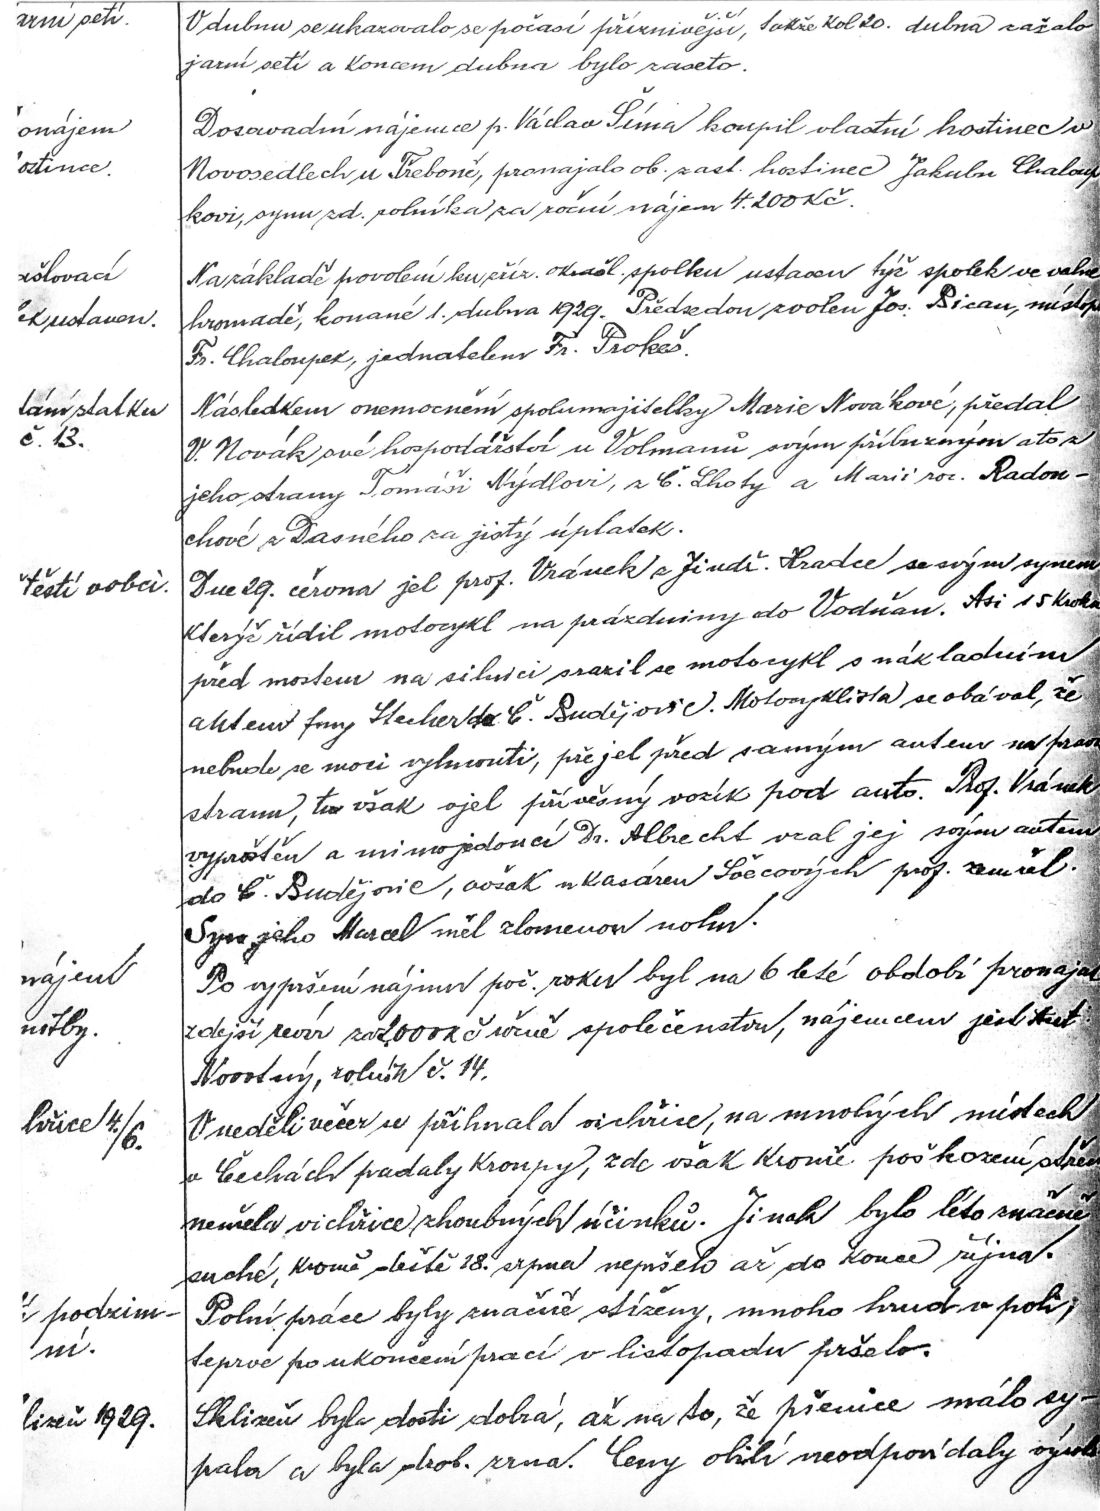 arní setí.
V dubnu se ukazovalo se počasí příznivější, takže kol 20. dubna začalo
jarní setí a koncem dubna bylo zaseto.
onájem
ostince.
Dosavadní nájemce p. Václav Šíma koupil vlastní hostinec v
Novosedlech u Třeboně, pronajalo ob. zast. hostinec Jakubu Chaloup
kovi, synu zd. rolníka za roční nájem 4.200 Kč.
ašlovací
ek ustaven.
Na základě povolení ku zříz. okrašl. spolku ustaven týž spolek ve valné
hromadě, konané 1. dubna 1929. Předsedou zvolen Jos. Bican, místop
Fr. Chaloupek, jednatelem Fr. Prokeš.
dání statku
č. 13.
Následkem onemocnění spolumajitelky Marie Novákové, předal
V. Novák své hospodářství u Volmanů svým příbuzným a to z
jeho strany Tomáši Nýdlovi, z Č. Lhoty a Marii roz. Radou-
chové z Dasného za jistý úplatek.
štěstí v obci.
Dne 29. června jel prof. Vránek z Jindř. Hradce se svým synem
kterýž řídil motocykl na prázdniny do Vodňan. Asi 15 kroků
před mostem na silnici srazil se motocykl s nákladním
autem fmy Stecher z Č. Budějovic. Motocyklista se obával, že
nebude se moci vyhnouti, přejel před samým autem na pravou
stranu, tu však vjel přívěsný vozík pod auto. Prof. Vránek
vyproštěn a mimojedoucí Dr. Albrecht vzal jej svým autem
do Č. Budějovic, avšak u kasáren prof. zemřel.
Syn jeho Marcel měl zlomenou nohu.
nájem
nitby.
Po vypršení nájmu poč. roku byl na 6 leté období pronajat
zdejší revír za 2.000 Kč ročně společenstvu, nájemcem jest Ant.
Novotný, rolník č. 14.
hřice 4./6.
V neděli večer se přihnala vichřice, na mnohých místech
v Čechách padaly kroupy, zde však kromě poškození střech
neměla vichřice zhoubných účinků. Jinak bylo léto značně
suché, kromě deště 28. srpna nepršelo až do konce října.
í podzim-
ní.
Polní práce byly značně stíženy, mnoho hrud v poli;
teprve po ukončení prací v listopadu pršelo.
lizeň 1929.
Sklizeň byla dosti dobrá, až na to, že pšenice málo sy-
pala a byla drob. zrna. Ceny obilí neodpovídaly výrob